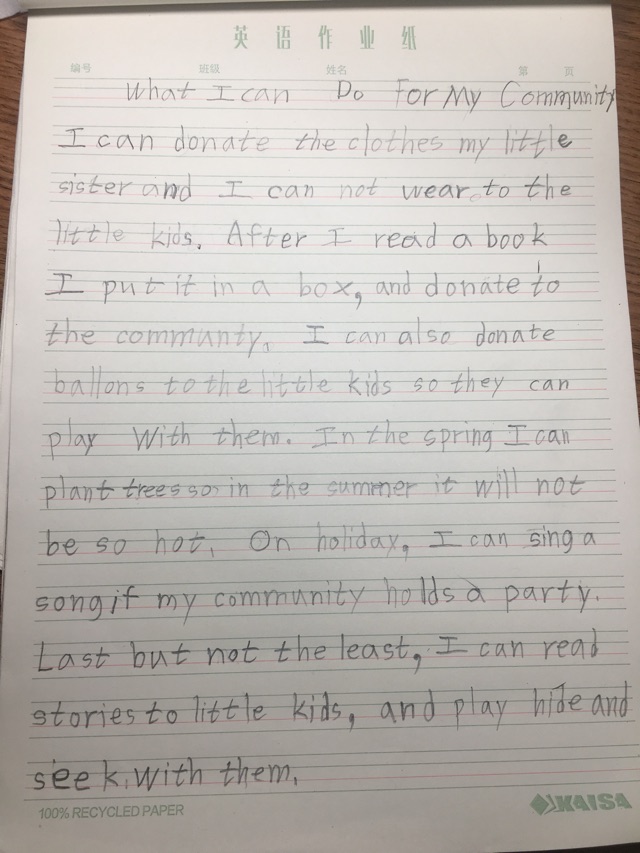 英语作业纸
编号 班级 姓名 第 页
What I can Do For My Community
I can donate the clothes my little
sister and I can not wear to the
little kids. After I read a book
I put it in a box, and donate to
the communty. I can also donate
ballons to the little kids so they can
play With them. In the spring I can
plant trees so in the summer it will not
be so hot. On holiday, I can sing a
song if my community holds a party.
Last but not the least, I can read
stories to little kids, and play hide and
seek with them.
100% RECYCLED PAPER KAISA